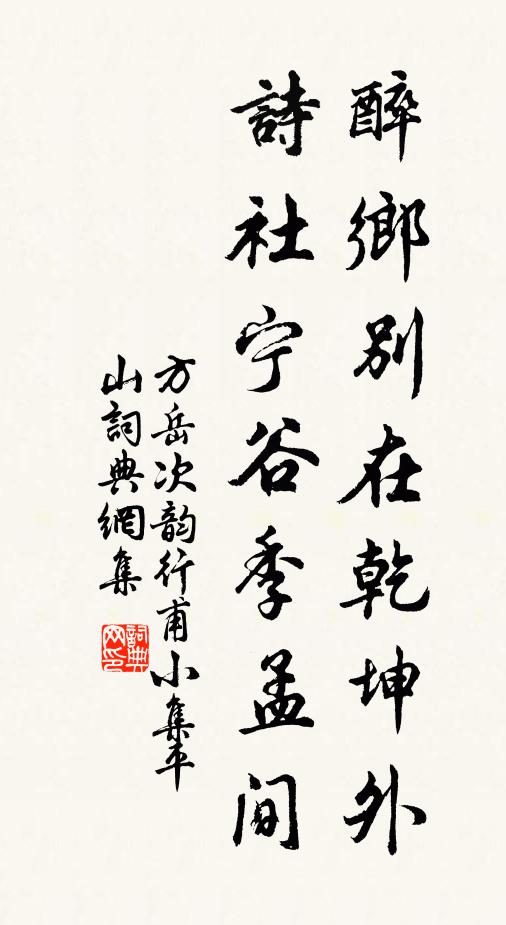 醉鄉別在乾坤外
詩社宁谷季孟間
方岳次韵行甫小集平
山詞典網集
詞典网印